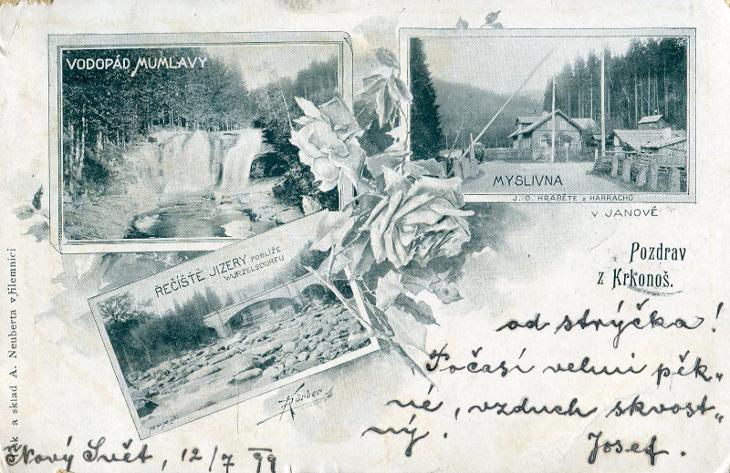 VODOPÁD MUMLAVY
MYSLIVNA
J. O. HRABĚTE z HARRACHŮ
V JANOVĚ
ŘEČIŠTĚ JIZERY POBLÍŽE
WURZELSDORFU
Pozdrav
z Krkonoš.
od strýčka!
Počasí velmi pěk-
né, vzduch skvost-
ný. Josef.
Nový Svět, 12/7 99
a sklad A. Neuberta v Jilemnici